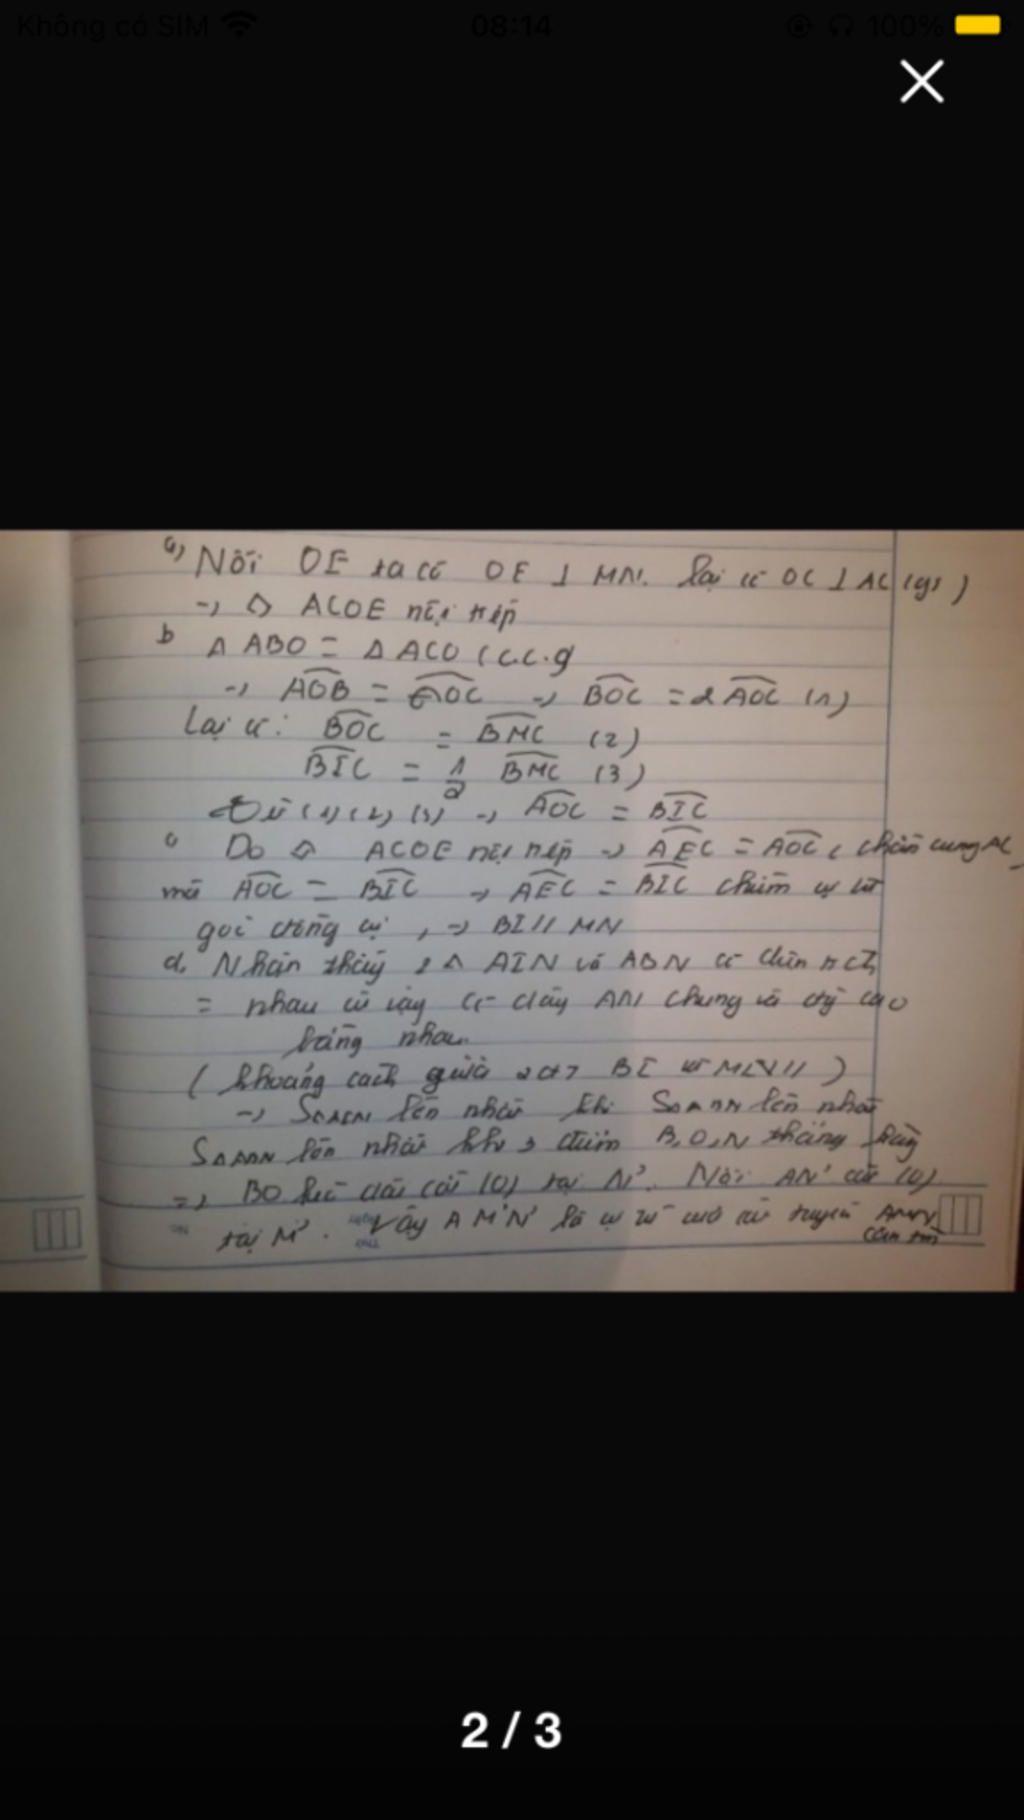 Không có SIM 08:14 100%
a, Nối OE ta có OE ⊥ MN. lại có OC ⊥ AC (gt)
→ ◇ ACOE nội tiếp
b Δ ABO = Δ ACO (c.c.g
→ AOB = AOC → BOC = 2 AOC (1)
Lại có: BOC = BMC (2)
BIC = 1/2 BMC (3)
Từ (1) (2) (3) → AOC = BIC
c Do ◇ ACOE nội tiếp → AEC = AOC, chắn cung AC
mà AOC = BIC → AEC = BIC chúng ở vt
góc đồng vị, → BI // MN
d. Nhận thấy 2 Δ AIN và ABN có diện tích
= nhau vì vậy có đáy AN chung và đg cao
bằng nhau.
( khoảng cách giữa 2 đt BI và MN // )
→ SΔAIN lớn nhất khi SΔABN lớn nhất
SΔABN lớn nhất khi 3 điểm B, O, N thẳng hàng
=> BO kéo dài cắt (O) tại N'. Nối AN' cắt (O)
tại M'. Vậy AM'N' là vị trí của cát tuyến AMN
cần tìm
2 / 3